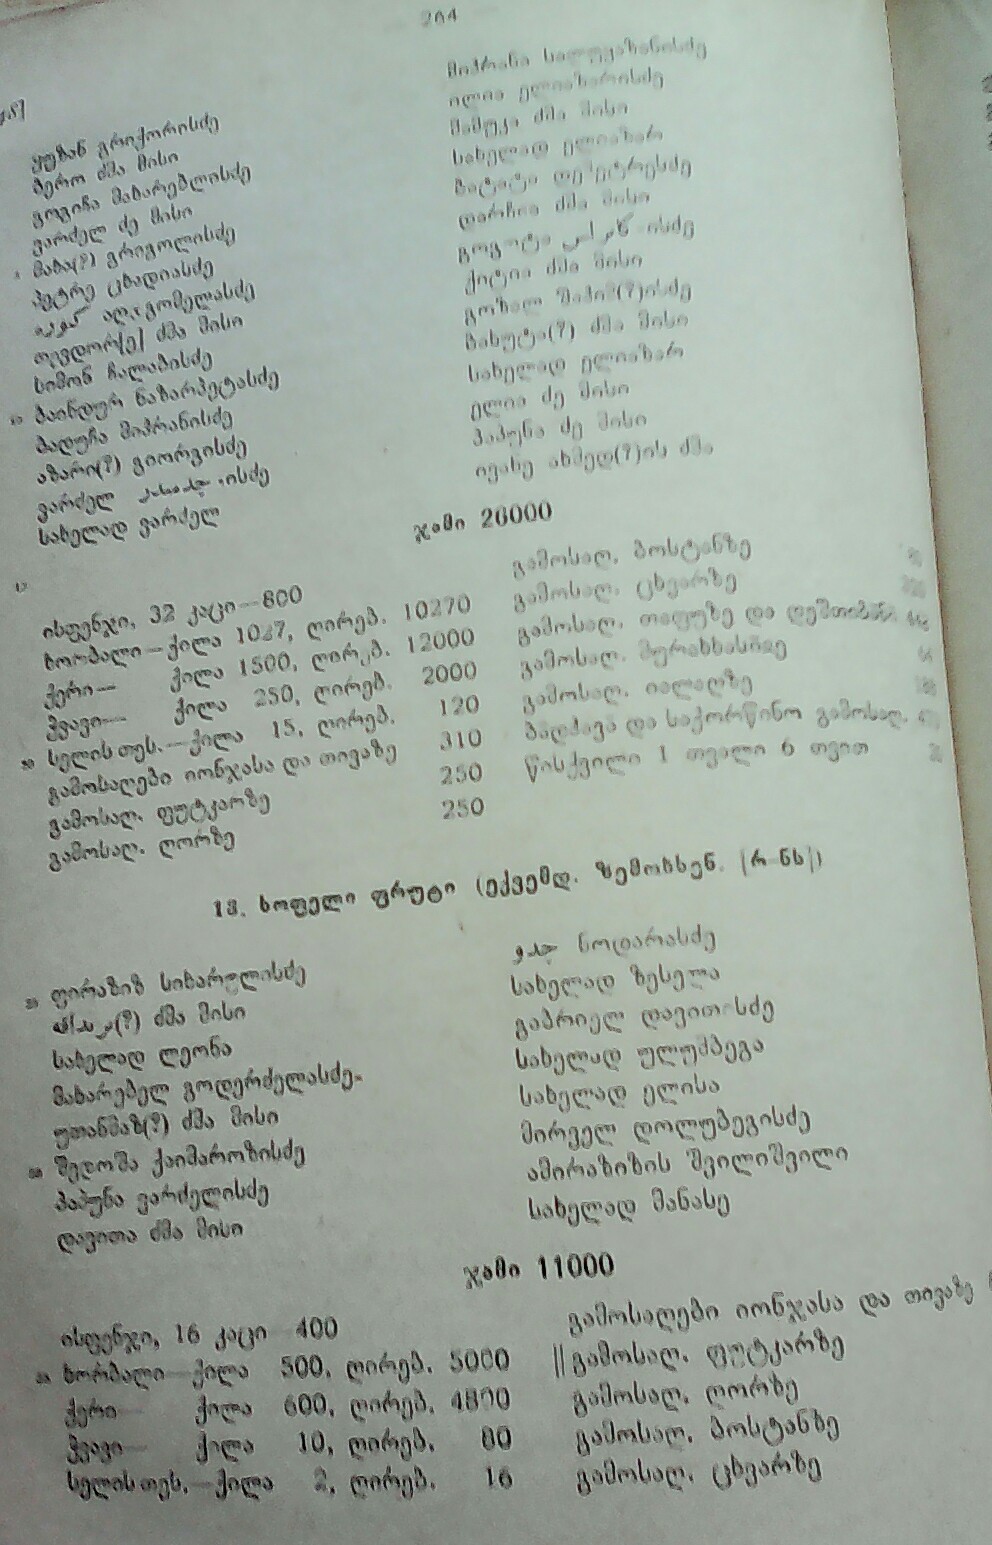 264
იოსებ გრიქორისძე
ბერო ძმა მისი
გოგიჩა მახარებლისძე
ვარძელ ძე მისი
მახა(?) გრიგოლისძე
პეტრე ცხადიასძე
თევდორ[ე] ძმა მისი
სიმონ ჩალაბისძე
ბაინდურ ნაზარპეტასძე
ბადუჩა მიპრანისძე
აზარი(?) გიორგისძე
ვარძელ ისძე
სახელად ვარძელ
ილია ელიაზარისძე
მამუკა ძმა მისი
სახელად ელიაზარ
ბატატა დემეტრესძე
დარჩია ძმა მისი
გოგოტა ისძე
ქიტია ძმა მისი
გოზალ (?)ისძე
ბახუტა(?) ძმა მისი
სახელად ელიაზარ
ელია ძე მისი
პაპუნა ძე მისი
ივანე ახმედ(?)ის ძმა
ჯამი 26000
ისფენჯი, 32 კაცი—800
ხორბალი—ქილა 1027, ღირებ. 10270
ქერი— ქილა 1500, ღირებ. 12000
ჭვავი— ქილა 250, ღირებ. 2000
სელის თეს.—ქილა 15, ღირებ. 120
გამოსაღები იონჯასა და თივაზე 310
გამოსაღ. ფუტკარზე 250
გამოსაღ. ღორზე 250
გამოსაღ. ბოსტანზე
გამოსაღ. ცხვარზე
გამოსაღ. თაფუზე და დეშთიბან.
გამოსაღ.
გამოსაღ. იალაღზე
ბადჰავა და საქორწინო გამოსაღ.
წისქვილი 1 თვალი 6 თვით
13. სოფელი ფრუტი (ექვემდ. ზემოხსენ. [რ-ნს])
ფირაზიზ სიხარულისძე
(?) ძმა მისი
სახელად ლეონა
მახარებელ გოდერძელასძე
უთანმაზ(?) ძმა მისი
შედოშა ქაიმაროზისძე
პაპუნა ვარძელისძე
დავითა ძმა მისი
ნოდარასძე
სახელად ზესელა
გაბრიელ დავითისძე
სახელად ულუმბეგა
სახელად ელისა
მირველ დოლუბეგისძე
ამირაზიზის შვილიშვილი
სახელად მანასე
ჯამი 11000
ისფენჯი, 16 კაცი—400
ხორბალი—ქილა 500, ღირებ. 5000
ქერი— ქილა 600, ღირებ. 4800
ჭვავი— ქილა 10, ღირებ. 80
სელის თეს.—ქილა 2, ღირებ. 16
გამოსაღები იონჯასა და თივაზე
||გამოსაღ. ფუტკარზე
გამოსაღ. ღორზე
გამოსაღ. ბოსტანზე
გამოსაღ. ცხვარზე